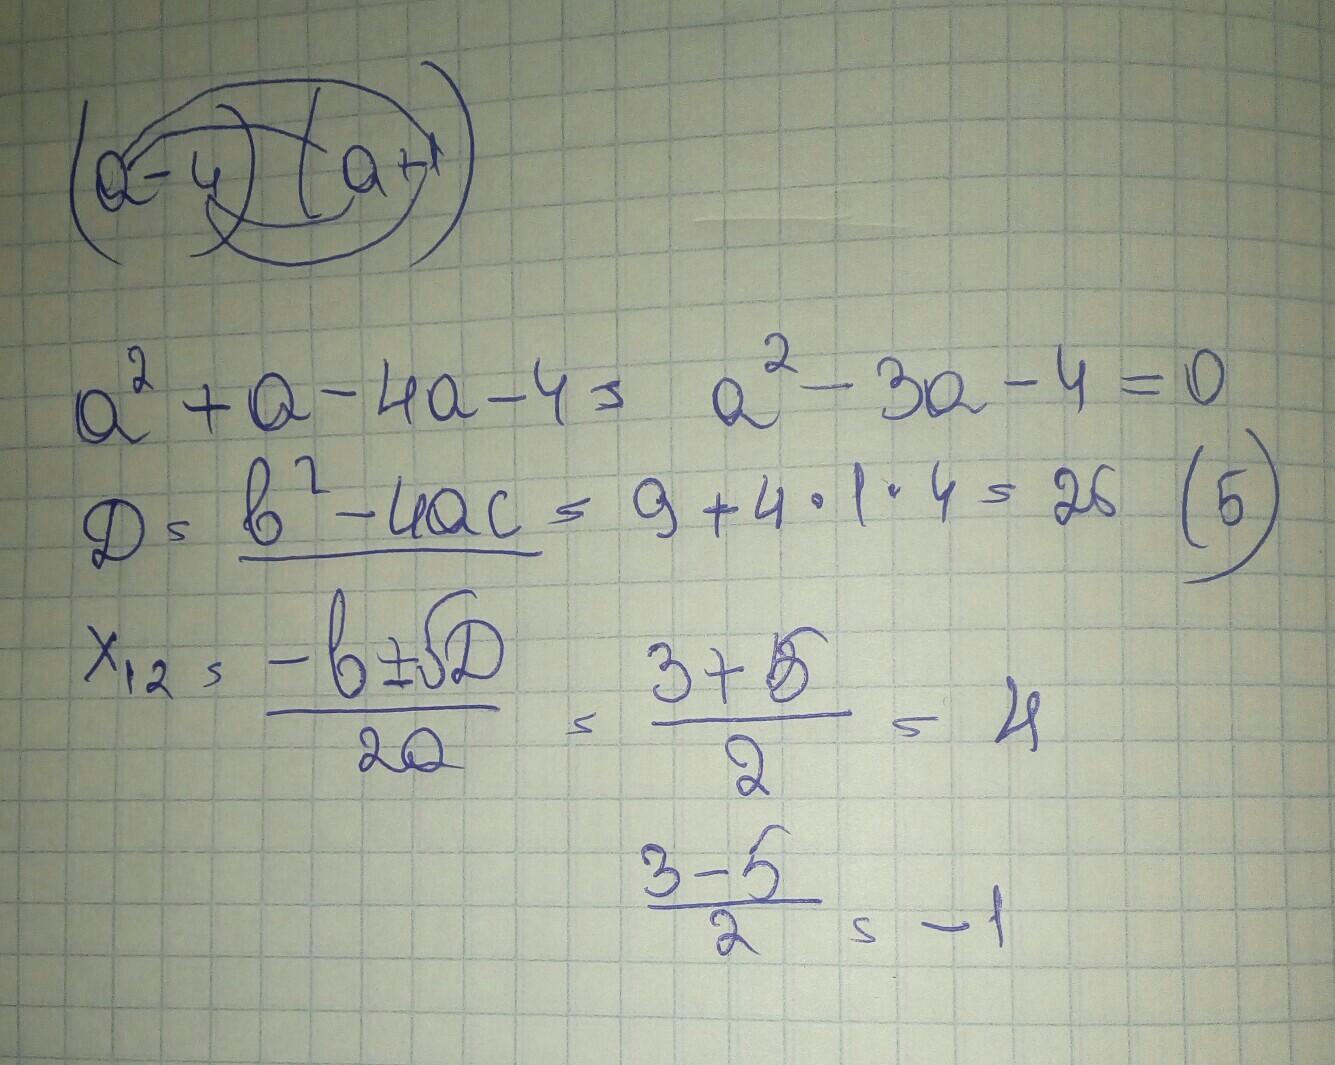 (a-4)(a+1)
a²+a-4a-4= a²-3a-4=0
D= b²-4ac = 9+4·1·4= 25 (5)
x₁₂= (-b±√D)/2a = (3+5)/2 = 4
(3-5)/2 = -1